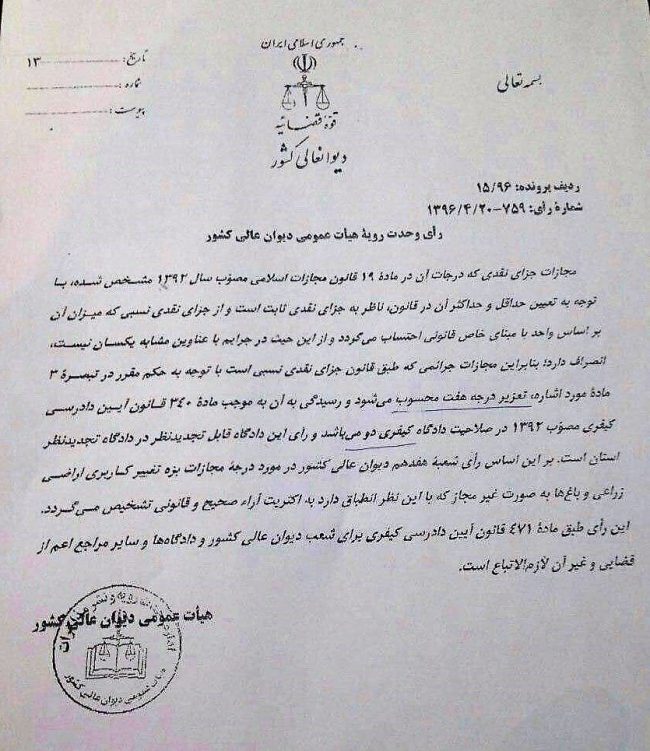 جمهوری اسلامی ایران
قوّه قضائیه
دیوانعالی کشور
بسمه تعالی
تاریخ: ۱۳
شماره:
پیوست:
ردیف پرونده: ۱۵/۹۶
شمارهٔ رأی: ۷۵۹-۱۳۹۶/۴/۲۰
رأی وحدت رویهٔ هیأت عمومی دیوان عالی کشور
مجازات جزای نقدی که درجات آن در مادهٔ ۱۹ قانون مجازات اسلامی مصوّب سال ۱۳۹۲ مشخص شده، با
توجه به تعیین حداقل و حداکثر آن در قانون، ناظر به جزای نقدی ثابت است و از جزای نقدی نسبی که میزان آن
بر اساس واحد یا مبنای خاص قانونی احتساب می‌گردد و از این حیث در جرایم با عناوین مشابه یکسان نیست،
انصراف دارد؛ بنابراین مجازات جرائمی که طبق قانون جزای نقدی نسبی است با توجه به حکم مقرر در تبصرهٔ ۳
مادهٔ مورد اشاره، تعزیر درجه هفت محسوب می‌شود و رسیدگی به آن به موجب مادهٔ ۳۴۰ قانون آیین دادرسی
کیفری مصوّب ۱۳۹۲ در صلاحیت دادگاه کیفری دو می‌باشد و رأی این دادگاه قابل تجدیدنظر در دادگاه تجدیدنظر
استان است. بر این اساس رأی شعبهٔ هفدهم دیوان عالی کشور در مورد درجهٔ مجازات بزه تغییر کاربری اراضی
زراعی و باغ‌ها به صورت غیر مجاز که با این نظر انطباق دارد به اکثریت آراء صحیح و قانونی تشخیص می‌گردد.
این رأی طبق مادهٔ ۴۷۱ قانون آیین دادرسی کیفری برای شعب دیوان عالی کشور و دادگاه‌ها و سایر مراجع اعم از
قضایی و غیر آن لازم‌الاتباع است.
هیأت عمومی دیوان عالی کشور
هیأت عمومی دیوان عالی کشور